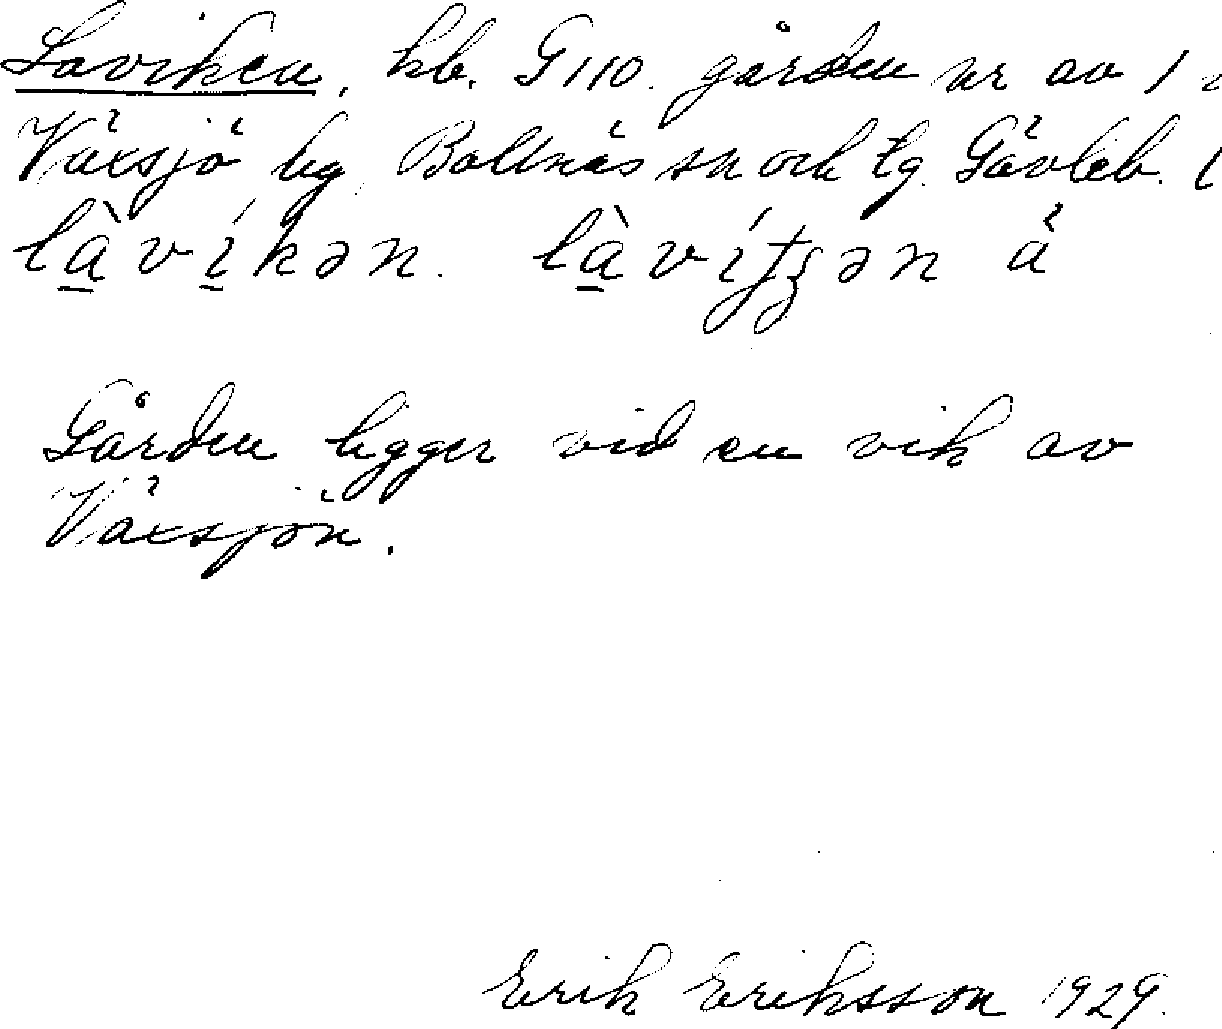 Laviken, hb. G 110. gården nr av 1 i
Växsjö by, Bollnäs sn och tg. Gävleb. l
là̱ví̱kən. là̱vít̡ʂən ä
Gården ligger vid en vik av
Växsjön.
Erik Eriksson 1929.